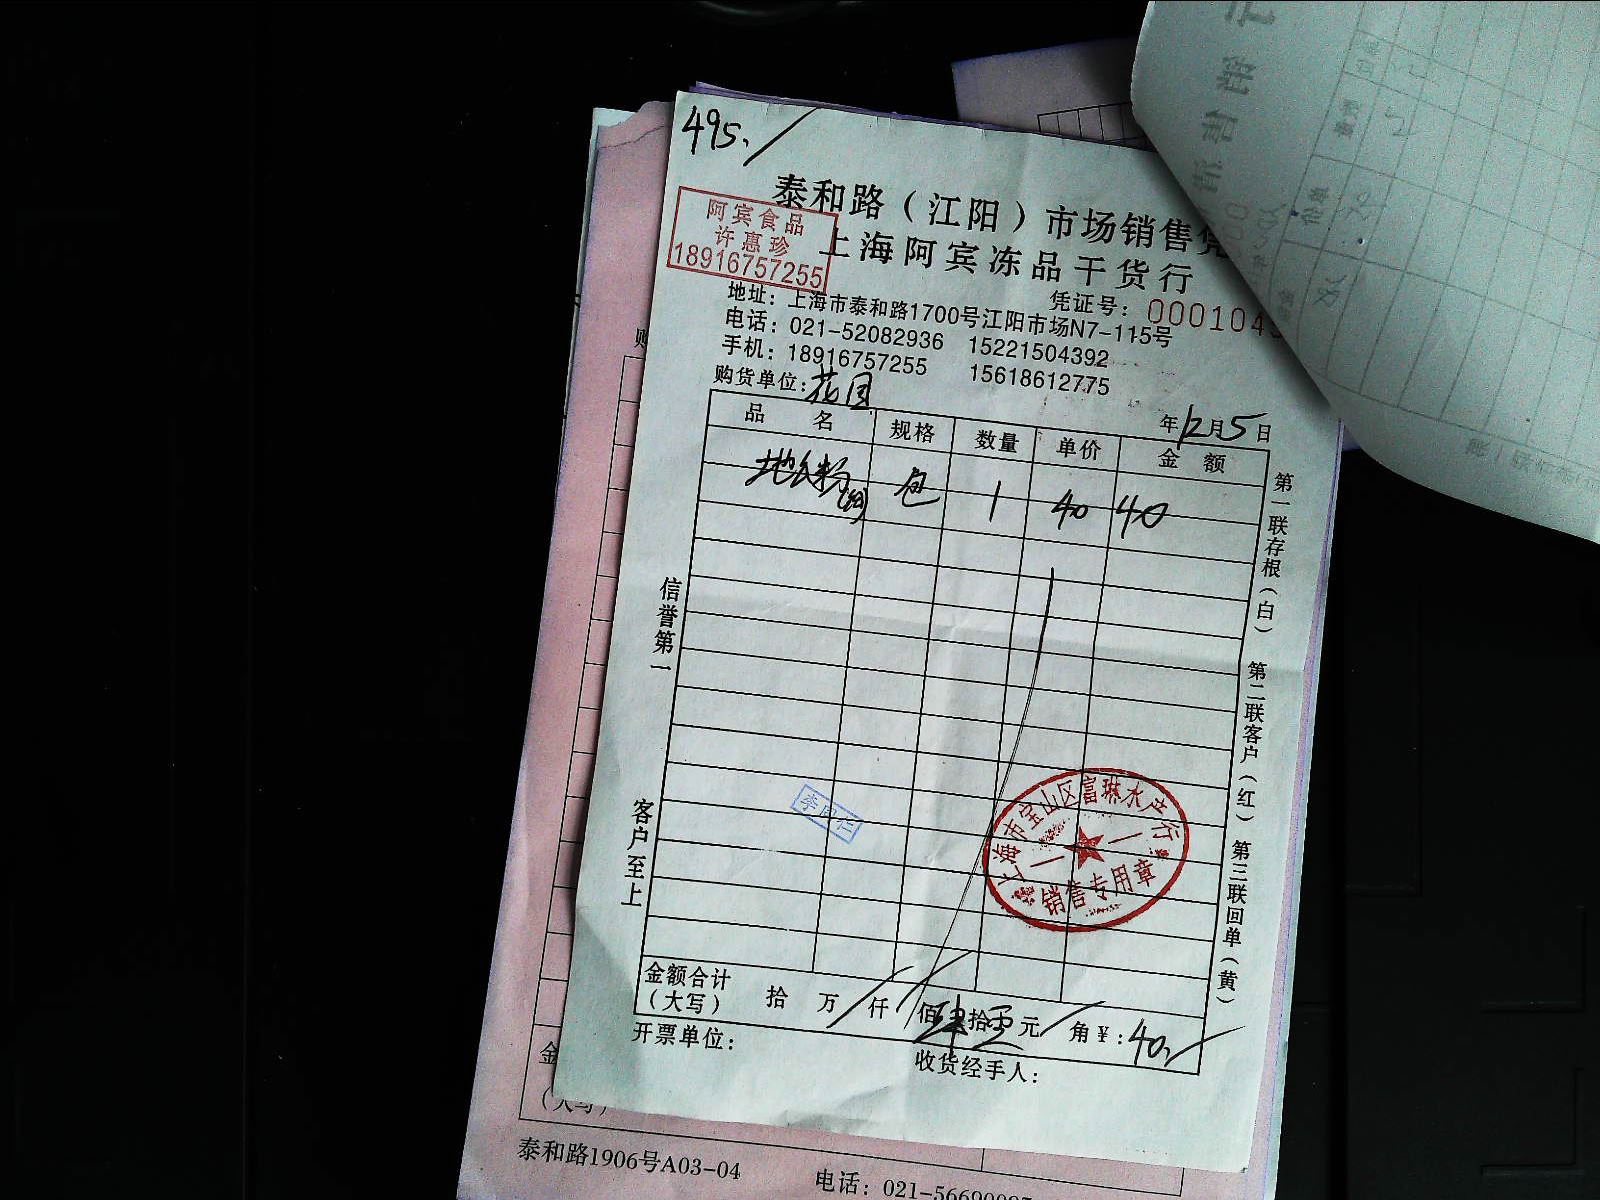 495.
泰和路（江阳）市场销售
阿宾食品
许惠珍
18916757255
上海阿宾冻品干货行
凭证号：000104
地址：上海市泰和路1700号江阳市场N7-115号
电话：021-52082936 15221504392
手机：18916757255 15618612775
购货单位：花园
年12月5日
品名 规格 数量 单价 金额
包 1 40 40
信誉第一
客户至上
第一联存根（白） 第二联客户（红） 第三联回单（黄）
上海市宝山区富琳水产行
销售专用章
金额合计
（大写） 拾 万 仟 佰 肆拾 元 角 ¥：40.
开票单位：
收货经手人：
购
金
（大写）
泰和路1906号A03-04
电话：021-566900